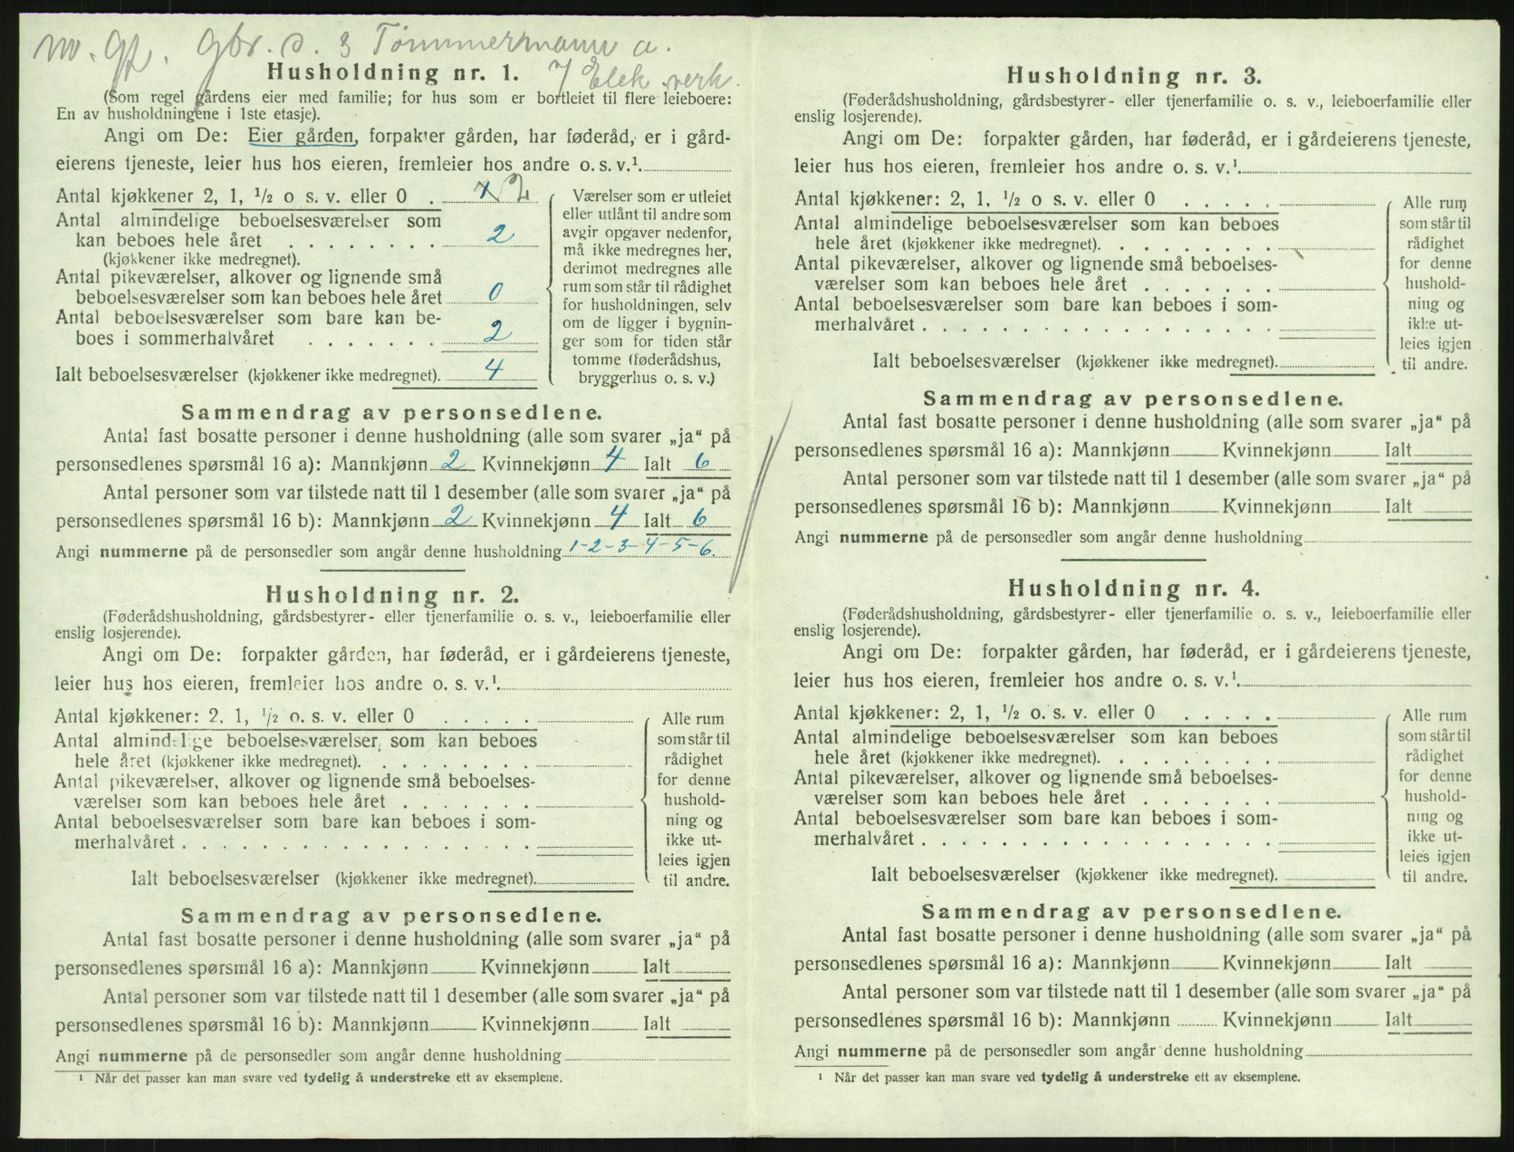 Gbr. s. 3 Tømmermann a.
7 Elek. verk.
Husholdning nr. 1.
(Som regel gårdens eier med familie; for hus som er bortleiet til flere leieboere:
En av husholdningene i 1ste etasje).
Angi om De: Eier gården, forpakter gården, har føderåd, er i gård-
eierens tjeneste, leier hus hos eieren, fremleier hos andre o. s. v.¹.
Antal kjøkkener 2, 1, ½ o s. v. eller 0 . 2
Antal almindelige beboelsesværelser som
kan beboes hele året . . . . . . . . 2
(kjøkkener ikke medregnet).
Antal pikeværelser, alkover og lignende små
beboelsesværelser som kan beboes hele året 0
Antal beboelsesværelser som bare kan be-
boes i sommerhalvåret . . . . . . . 2
Ialt beboelsesværelser (kjøkkener ikke medregnet). 4
Værelser som er utleiet
eller utlånt til andre som
avgir opgaver nedenfor,
må ikke medregnes her,
derimot medregnes alle
rum som står til rådighet
for husholdningen, selv
om de ligger i bygnin-
ger som for tiden står
tomme (føderådshus,
bryggerhus o. s. v.)
Sammendrag av personsedlene.
Antal fast bosatte personer i denne husholdning (alle som svarer „ja“ på
personsedlenes spørsmål 16 a): Mannkjønn 2 Kvinnekjønn 4 Ialt 6
Antal personer som var tilstede natt til 1 desember (alle som svarer „ja“ på
personsedlenes spørsmål 16 b): Mannkjønn 2 Kvinnekjønn 4 Ialt 6
Angi nummerne på de personsedler som angår denne husholdning 1-2-3-4-5-6.
Husholdning nr. 2.
(Føderådshusholdning, gårdsbestyrer- eller tjenerfamilie o. s. v., leieboerfamilie eller
enslig losjerende).
Angi om De: forpakter gården, har føderåd, er i gårdeierens tjeneste,
leier hus hos eieren, fremleier hos andre o. s. v.¹.
Antal kjøkkener: 2, 1, ½ o. s. v. eller 0 . . . . .
Antal almindelige beboelsesværelser som kan beboes
hele året (kjøkkener ikke medregnet). . . . . . . . .
Antal pikeværelser, alkover og lignende små beboelses-
værelser som kan beboes hele året . . . . . . .
Antal beboelsesværelser som bare kan beboes i som-
merhalvåret . . . . . . . . . . . . . . . . . .
Ialt beboelsesværelser (kjøkkener ikke medregnet).
Alle rum
som står til
rådighet
for denne
hushold-
ning og
ikke ut-
leies igjen
til andre.
Sammendrag av personsedlene.
Antal fast bosatte personer i denne husholdning (alle som svarer „ja“ på
personsedlenes spørsmål 16 a): Mannkjønn Kvinnekjønn Ialt
Antal personer som var tilstede natt til 1 desember (alle som svarer „ja“ på
personsedlenes spørsmål 16 b): Mannkjønn Kvinnekjønn Ialt
Angi nummerne på de personsedler som angår denne husholdning
¹ Når det passer kan man svare ved tydelig å understreke ett av eksemplene.
Husholdning nr. 3.
(Føderådshusholdning, gårdsbestyrer- eller tjenerfamilie o. s. v., leieboerfamilie eller
enslig losjerende).
Angi om De: forpakter gården, har føderåd, er i gårdeierens tjeneste,
leier hus hos eieren, fremleier hos andre o. s. v.¹.
Antal kjøkkener: 2, 1, ½ o s. v. eller 0 . . . . .
Antal almindelige beboelsesværelser som kan beboes
hele året (kjøkkener ikke medregnet). . . . . . . . .
Antal pikeværelser, alkover og lignende små beboelses-
værelser som kan beboes hele året . . . . . . .
Antal beboelsesværelser som bare kan beboes i som-
merhalvåret . . . . . . . . . . . . . . . . . .
Ialt beboelsesværelser (kjøkkener ikke medregnet).
Alle rum
som står til
rådighet
for denne
hushold-
ning og
ikke ut-
leies igjen
til andre.
Sammendrag av personsedlene.
Antal fast bosatte personer i denne husholdning (alle som svarer „ja“ på
personsedlenes spørsmål 16 a): Mannkjønn Kvinnekjønn Ialt
Antal personer som var tilstede natt til 1 desember (alle som svarer „ja“ på
personsedlenes spørsmål 16 b): Mannkjønn Kvinnekjønn Ialt
Angi nummerne på de personsedler som angår denne husholdning
Husholdning nr. 4.
(Føderådshusholdning, gårdsbestyrer- eller tjenerfamilie o. s. v., leieboerfamilie eller
enslig losjerende).
Angi om De: forpakter gården, har føderåd, er i gårdeierens tjeneste,
leier hus hos eieren, fremleier hos andre o. s. v.¹.
Antal kjøkkener: 2, 1, ½ o. s. v. eller 0 . . . . .
Antal almindelige beboelsesværelser som kan beboes
hele året (kjøkkener ikke medregnet). . . . . . . . .
Antal pikeværelser, alkover og lignende små beboelses-
værelser som kan beboes hele året . . . . . . .
Antal beboelsesværelser som bare kan beboes i som-
merhalvåret . . . . . . . . . . . . . . . . . .
Ialt beboelsesværelser (kjøkkener ikke medregnet).
Alle rum
som står til
rådighet
for denne
hushold-
ning og
ikke ut-
leies igjen
til andre.
Sammendrag av personsedlene.
Antal fast bosatte personer i denne husholdning (alle som svarer „ja“ på
personsedlenes spørsmål 16 a): Mannkjønn Kvinnekjønn Ialt
Antal personer som var tilstede natt til 1 desember (alle som svarer „ja“ på
personsedlenes spørsmål 16 b): Mannkjønn Kvinnekjønn Ialt
Angi nummerne på de personsedler som angår denne husholdning
¹ Når det passer kan man svare ved tydelig å understreke ett av eksemplene.